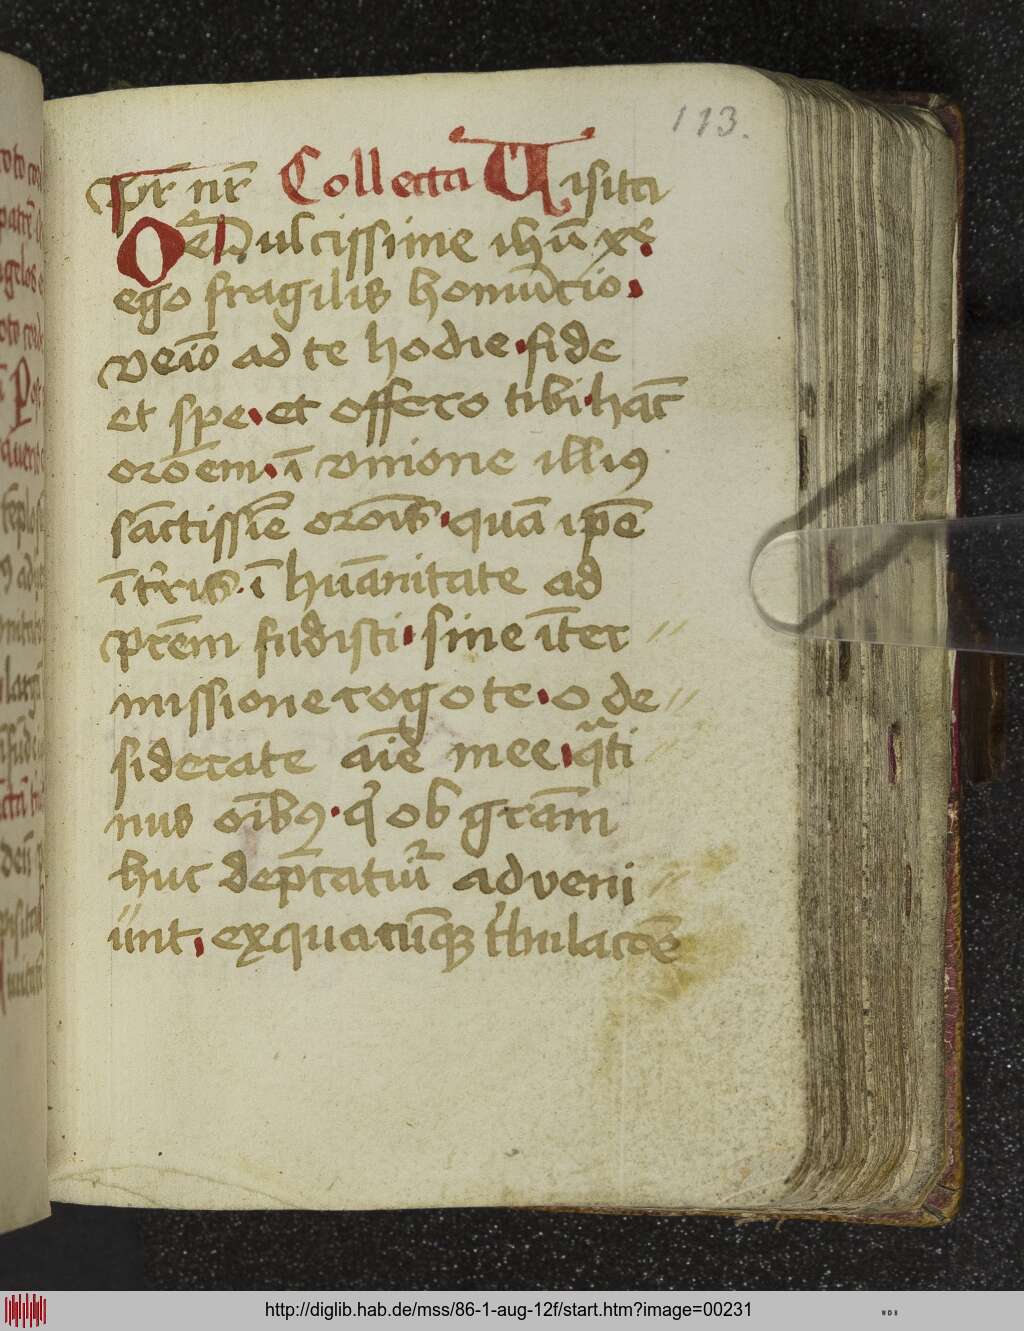 113.
Pr̄ nr̄ Collecta Uisita
O Dulcissime ihū xe
ego fragilis homūcio
veīo ad te hodie fide
et spe et offero tibi hāc
oroem ī vnione illiꝰ
sāctissīe oroīs quā ipē
ī tr̄is ī hūanitate ad
prēm fudisti sine īter
missione rogo te o de
siderate aīe mee qͣti
nus oībꝰ qͥ ob grām
huc dep̄catur̄ adveni
unt exquacūqꝫ tͥbulacōe
http://diglib.hab.de/mss/86-1-aug-12f/start.htm?image=00231